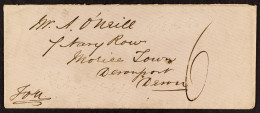 Mr. A. O'Neill
7 Navy Row
Morice Town
Devonport
Devon
6